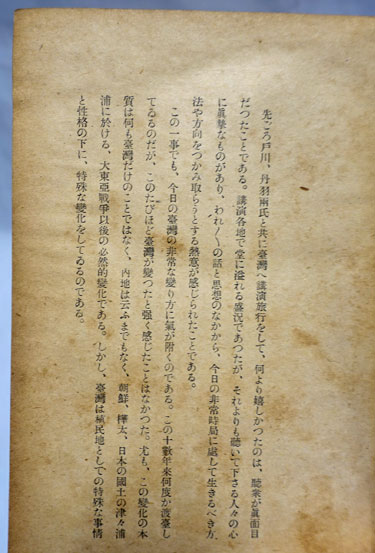 先ごろ戸川、丹羽兩氏と共に臺灣へ講演旅行をして、何より嬉しかつたのは、聽衆が眞面目
だつたことである。講演各地で堂に溢れる盛況であつたが、それよりも聽いて下さる人々の心
に眞摯なものがあり、われ〳〵の話と思想のなかから、今日の非常時局に處して生きるべき方
法や方向をつかみ取らうとする熱意が感じられたことである。
この一事でも、今日の臺灣の非常な變り方に氣が附くのである。この十數年來何度か渡臺し
てゐるのだが、このたびほど臺灣が變つたと强く感じたことはなかつた。尤も、この變化の本
質は何も臺灣だけのことではなく、內地は云ふまでもなく、朝鮮、樺太、日本の國土の津々浦
浦に於ける、大東亞戰爭以後の必然的變化である。しかし、臺灣は植民地としての特殊な事情
と性格の下に、特殊な變化をしてゐるのである。